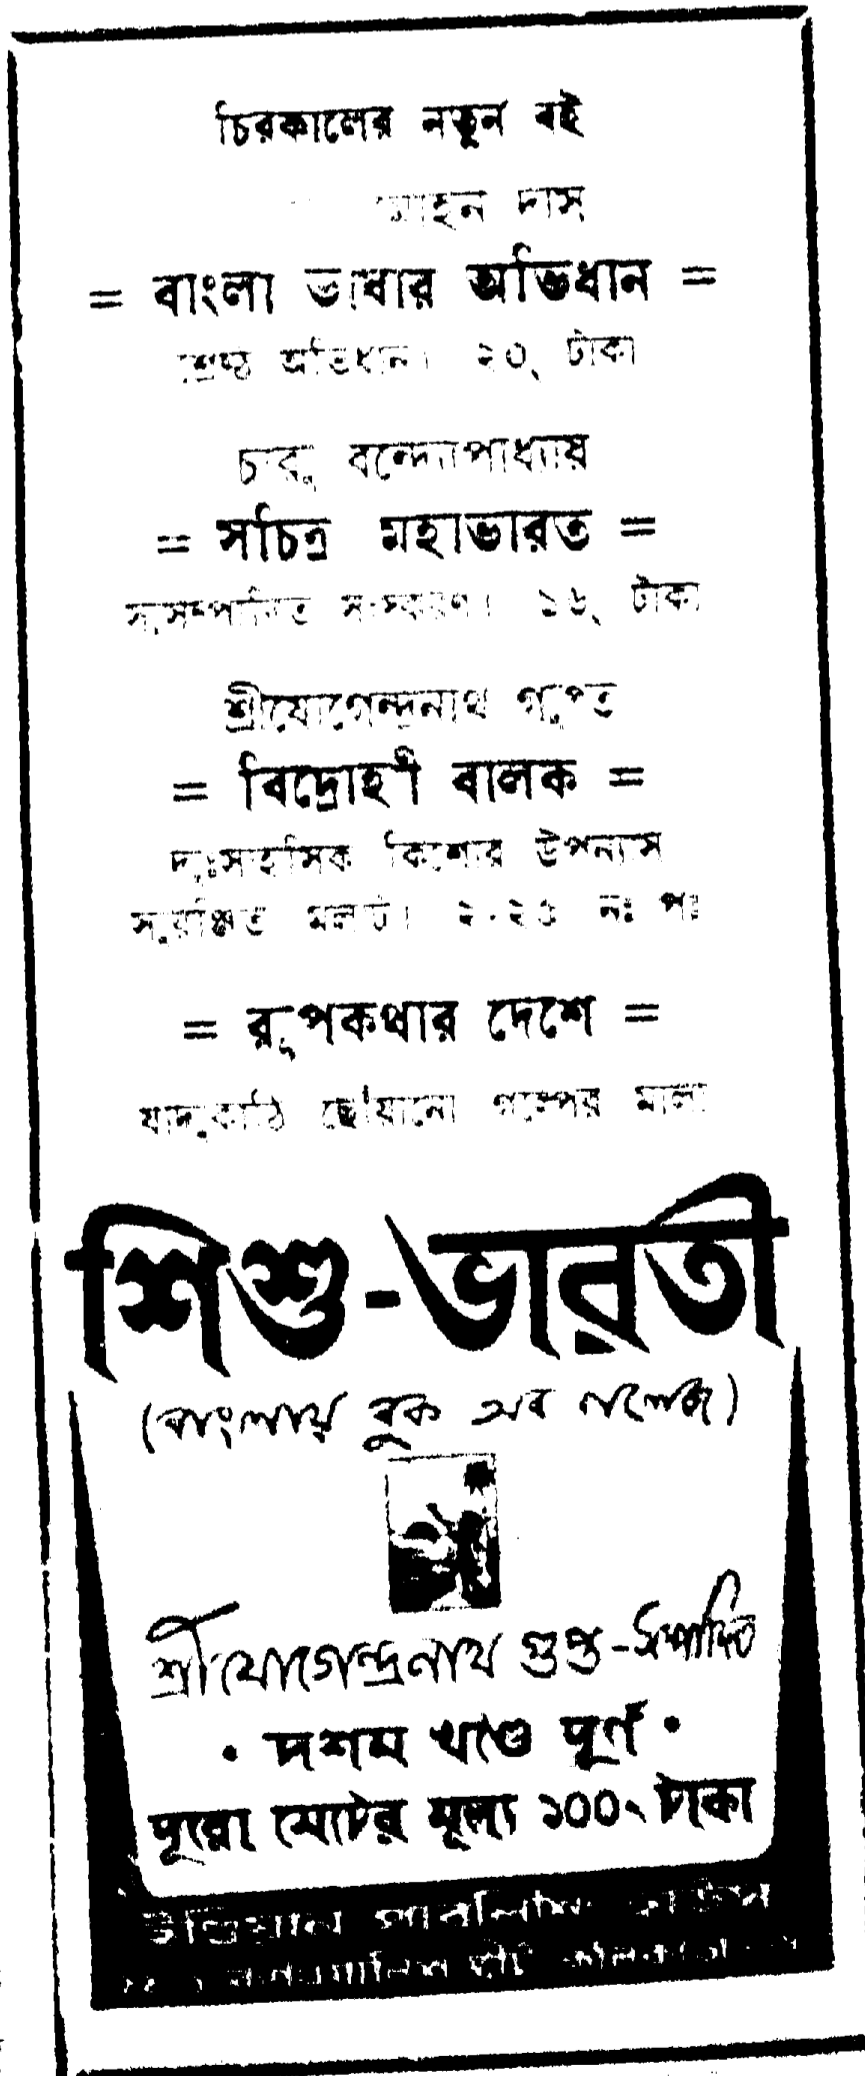 চিরকালের নতুন বই
মোহন দাস
= বাংলা ভাষার অভিধান =
শ্রেষ্ঠ অভিধান। ২০৲ টাকা
চারু বন্দ্যোপাধ্যায়
= সচিত্র মহাভারত =
সুসম্পাদিত সংস্করণ। ১৬৲ টাকা
শ্রীযোগেন্দ্রনাথ গুপ্ত
= বিদ্রোহী বালক =
দুঃসাহসিক কিশোর উপন্যাস
সুরঞ্জিত মলাট। নঃ পঃ
= রূপকথার দেশে =
যাদুকাঠি ছোঁয়ানো গল্পের মালা
শিশু-ভারতী
(বাংলায় বুক অব নলেজ)
শ্রীযোগেন্দ্রনাথ গুপ্ত-সম্পাদিত
• দশম খণ্ডে পূর্ণ •
পুরো সেটের মূল্য ১০০৲ টাকা
ইন্ডিয়ান পাবলিশিং হাউস
কর্ণওয়ালিশ স্ট্রীট কলিকাতা